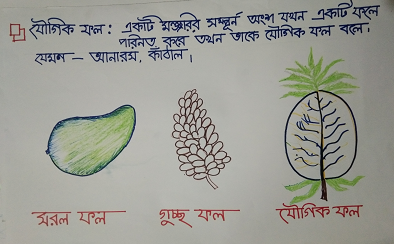 যৌগিক ফল : একটি মঞ্জুরির সম্পূর্ন অংশ যখন একটি ফলে
পরিনত করে তখন তাকে যৌগিক ফল বলে।
যেমন – আনারস, কাঁঠাল।
সরল ফল
গুচ্ছ ফল
যৌগিক ফল